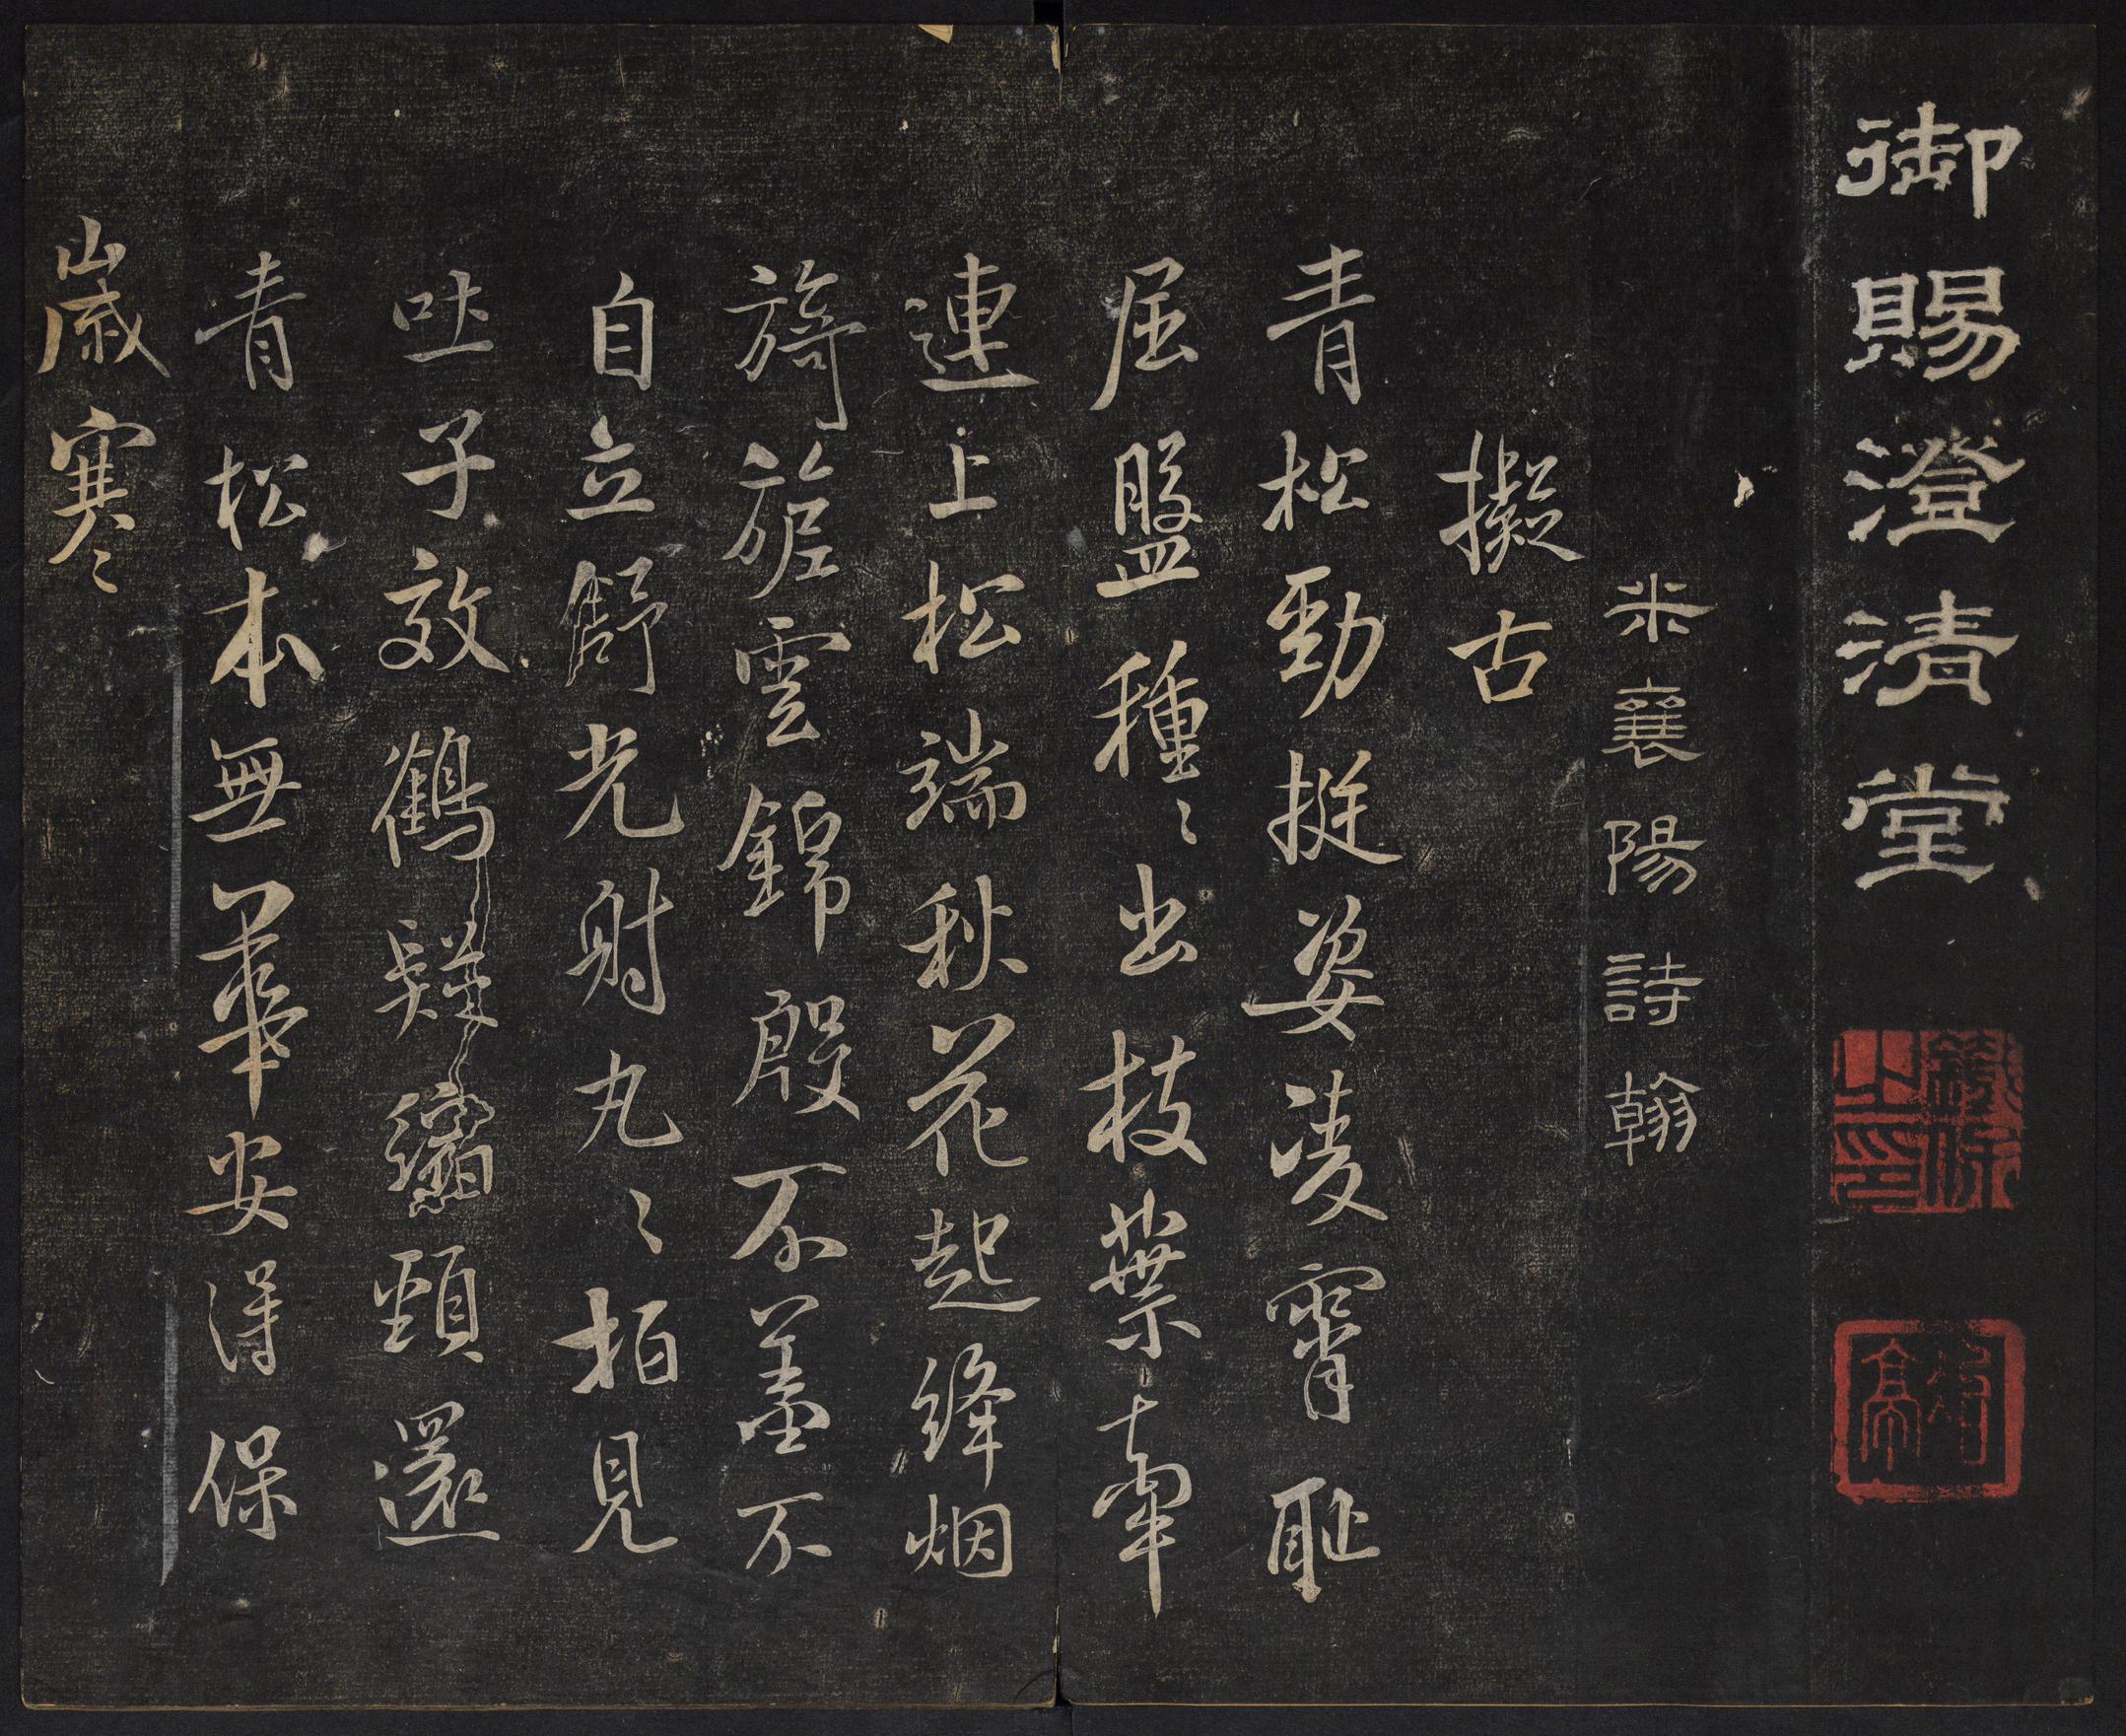 御賜澄清堂
米襄陽詩翰
擬古
青松勁挺姿凌霄恥
屈盤種〻出枝葉牽
連上松端秋花起絳烟
旖旎雲錦殷不羞不
自立舒光射丸〻柏見
吐子效鶴疑縮頸還
青松本無華安得保
歲寒〻